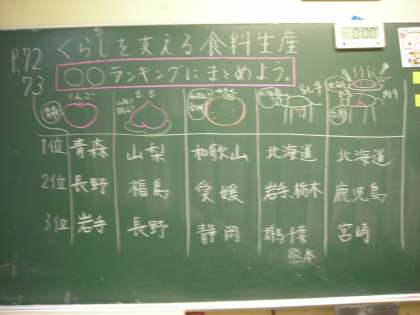 P.72
73
くらしを支える食料生産
○○ランキングにまとめよう。
りんご もも
1位 青森 山梨 和歌山 北海道 北海道
2位 長野 福島 愛媛 岩手、栃木 鹿児島
3位 岩手 長野 静岡 千葉 宮崎
熊本
0:00